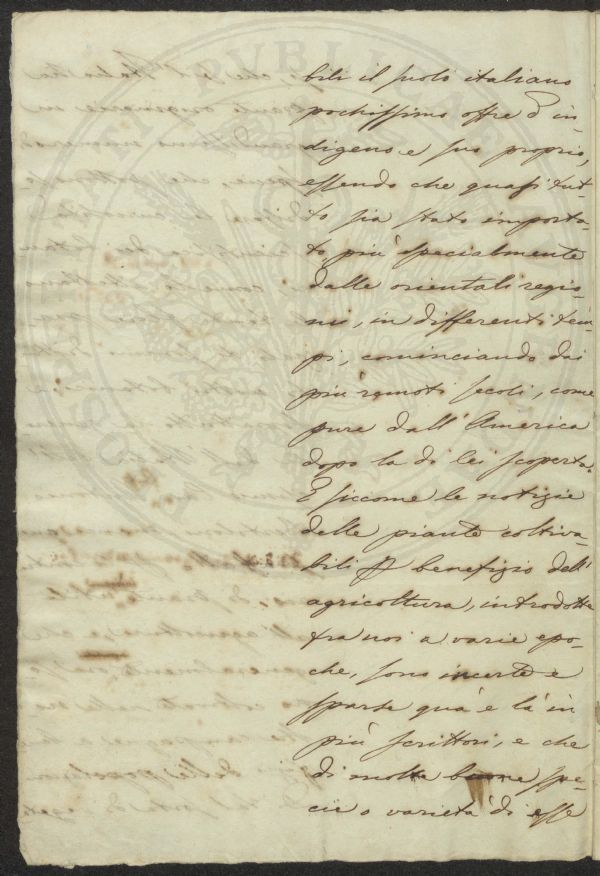 bili il suolo italiano
pochissimo offre d'in-
digeno e suo proprio,
essendo che quasi tut-
to sia stato importa-
to più specialmente
dalle orientali regio-
ni, in differenti tem-
pi, cominciando dai
più remoti secoli, come
pure dall'America
dopo la di lei scoperta.
E siccome le notizie
delle piante coltiva-
bili p benefizio dell'
agricoltura, introdotte
fra noi a varie epo-
che, sono incerte e
sparse quà e là in
più scrittori, e che
di molte buone spe-
cie o varietà di esse